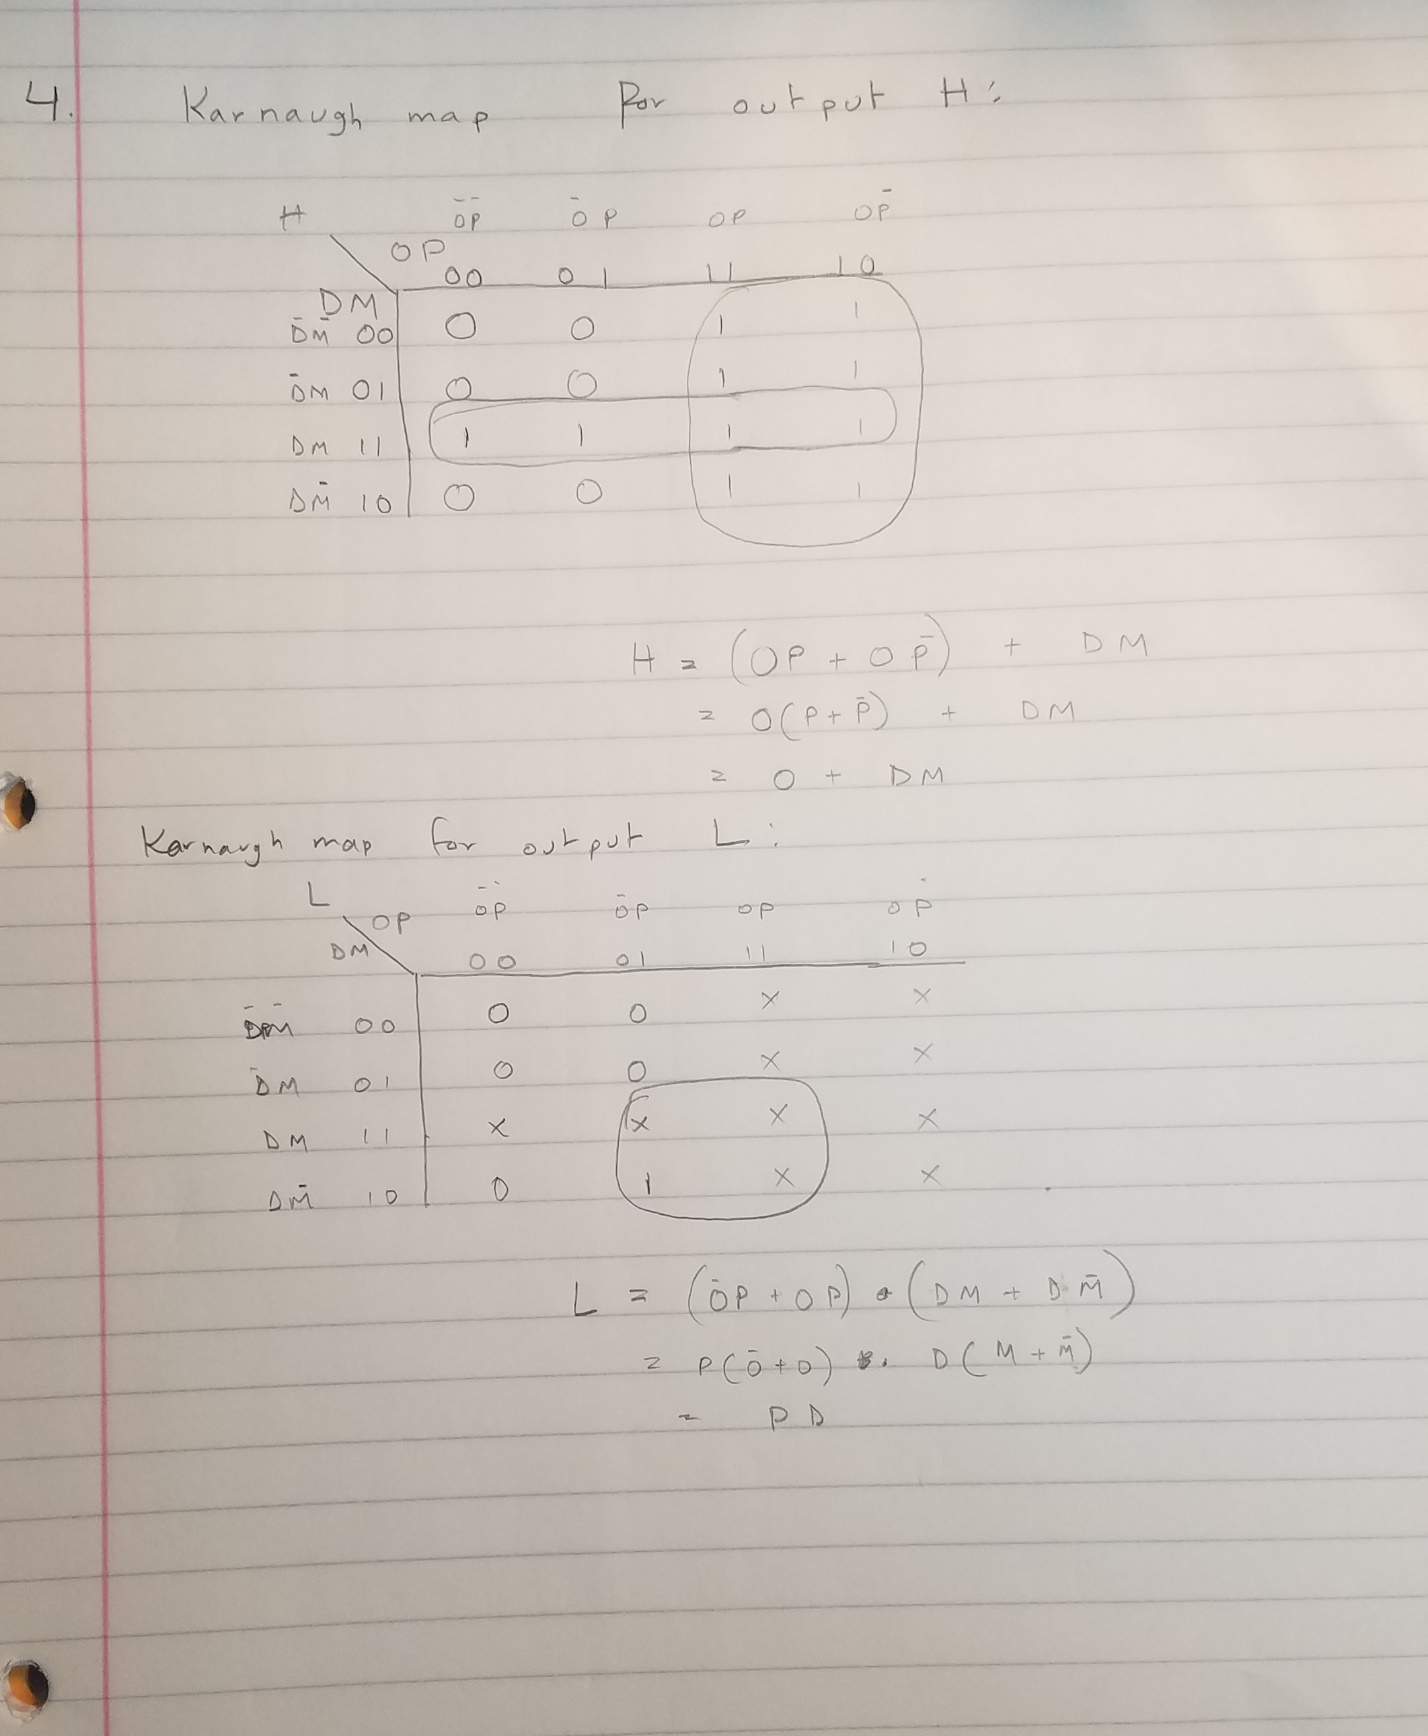 4. Karnaugh map for output H:
H ŌP̄ ŌP OP OP̄
OP
00 01 11 10
DM
D̄M̄ 00 0 0 1 1
D̄M 01 0 0 1 1
DM 11 1 1 1 1
DM̄ 10 0 0 1 1
H = (OP + OP̄) + DM
= O(P + P̄) + DM
= O + DM
Karnaugh map for output L:
L ŌP̄ ŌP OP OP̄
OP
DM 00 01 11 10
D̄M̄ 00 0 0 x x
D̄M 01 0 0 x x
DM 11 x x x x
DM̄ 10 0 1 x x
L = (ŌP + OP) • (DM + DM̄)
= P(Ō + O) . D(M + M̄)
= PD